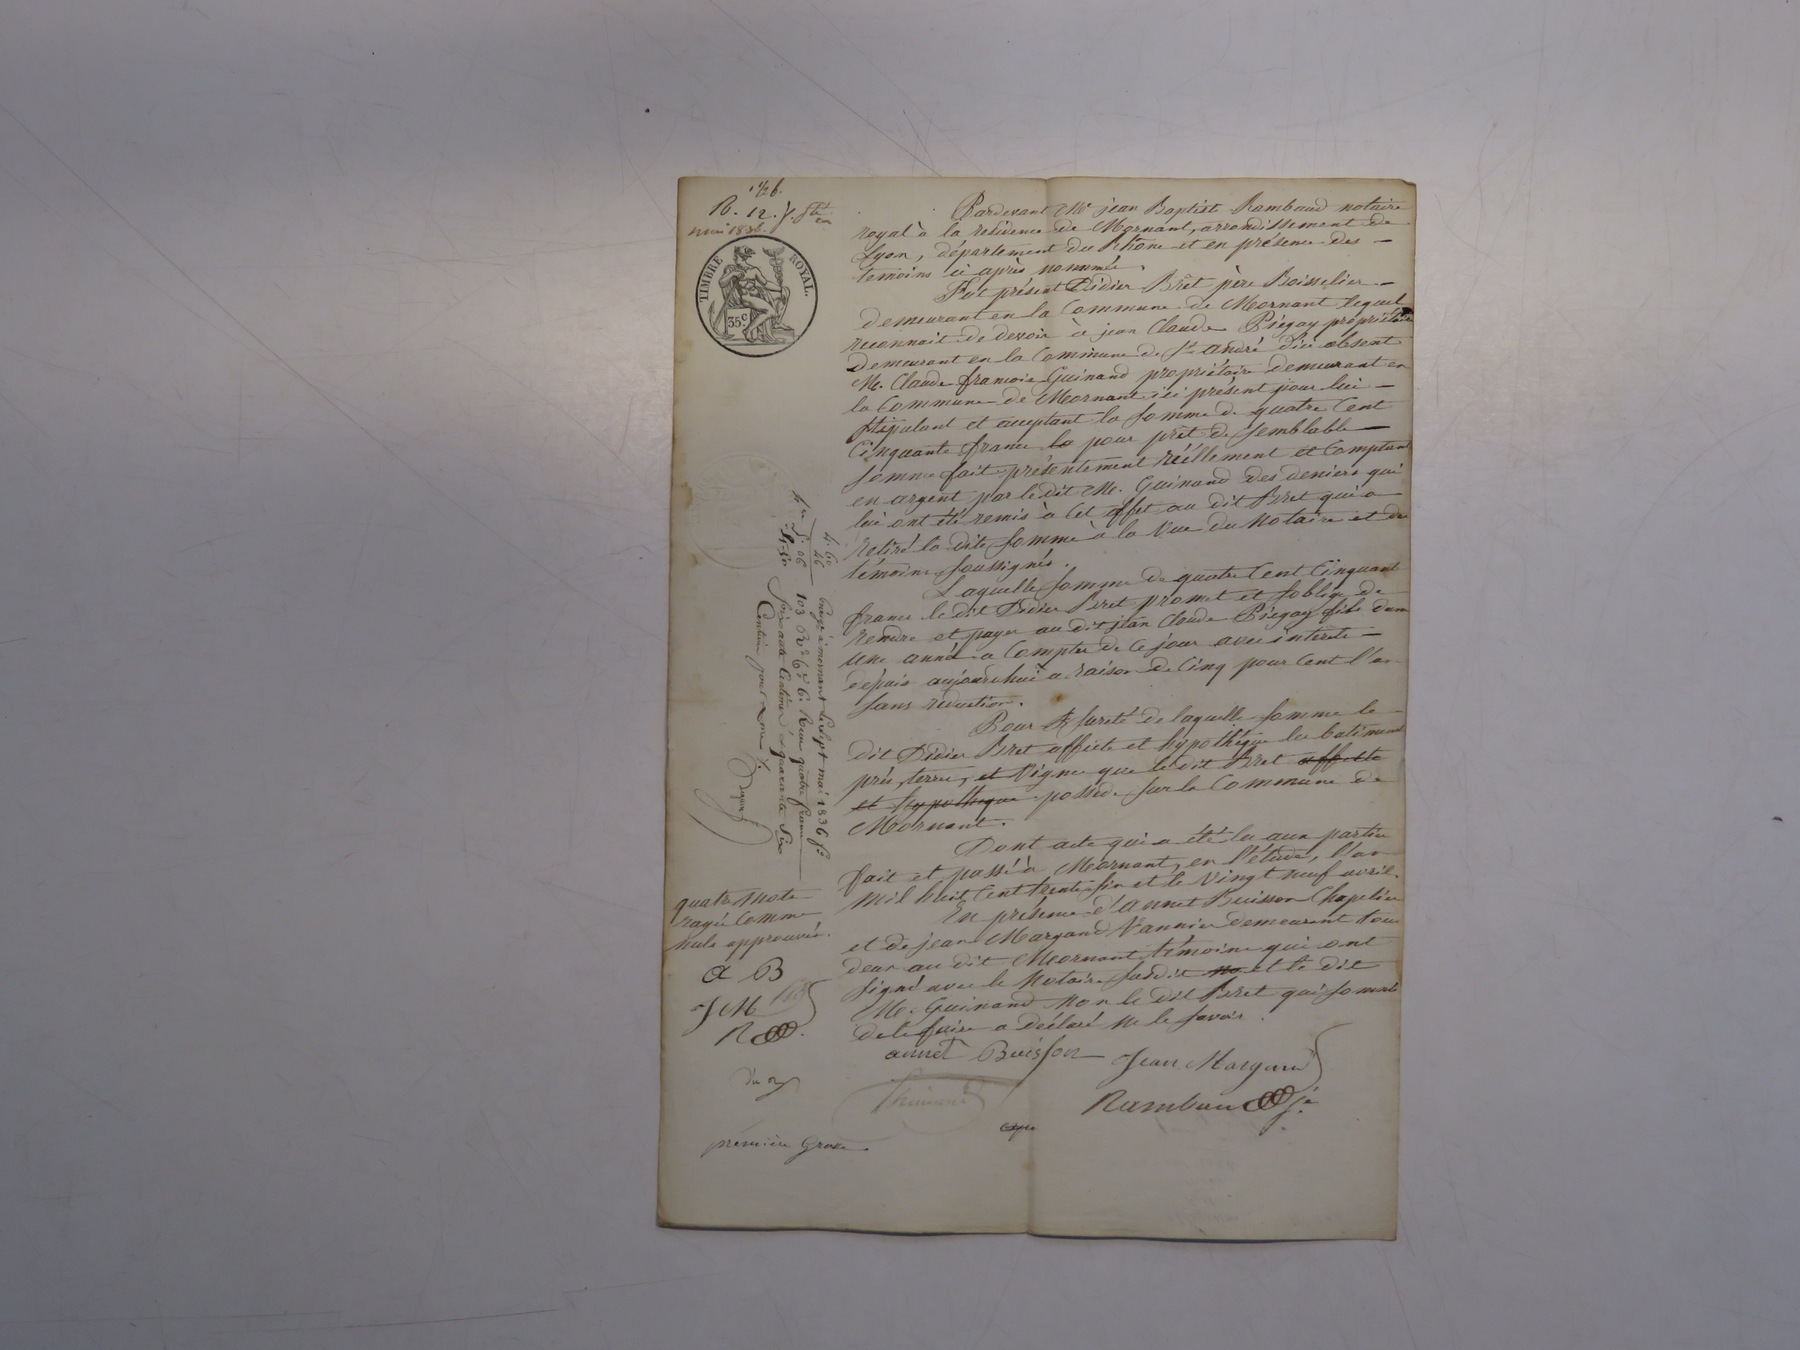 R. 12.
mai 1836.
TIMBRE ROYAL.
35 c
Pardevant Me jean Baptist Rambaud notaire
royal à la residence de Mornant, arrondissement de
Lyon, département du Rhône et en présence des
temoins ci après nommés.
Fut présent Didier Bret père Boisselier
demeurant en la Commune de Mornant lequel
reconnait de devoir à jean Claude Piégay propriétaire
demeurant en la Commune de St andré d'ici absent
M. Claude françois Guinand propriétaire demeurant en
la Commune de Mornant ici présent pour lui
stipulant et acceptant la somme de quatre Cent
Cinquante francs la pour prêt de semblable
somme fait présentement réellement et Comptant
en argent par le dit M. Guinand des deniers qui
lui ont été remis à Cet effet au dit Bret qui a
retiré la dite somme à la vue du Notaire et des
témoins soussignés.
Laquelle somme de quatre Cent Cinquante
francs le dit Didier Bret promet et s'oblige de
rendre et payer au dit jean Claude Piégay fils dans
une année a Compter de Ce jour avec intérêts
depuis aujourd'hui a raison de Cinq pour Cent l'an
sans réduction.
Pour sureté de laquelle somme le
dit Didier Bret affecte et hypothèque les batiments
prés, terres, et vignes que le dit Bret affecte
et hypothèque possède sur la Commune de
Mornant.
Dont acte qui a été lu aux parties
fait et passé à Mornant, en l'étude, l'an
mil huit Cent trente six et le vingt neuf avril.
En présence d'annet Buisson Chapelier
et de jean Margand Vannier demeurant tous
deux au dit Mornant témoins qui ont
signé avec le Notaire susdit et le dit
M. Guinand non le dit Bret qui sommé
de le faire a déclaré ne le savoir.
annet Buisson Jean Margand
Guinand
Rambaud
4. 60
46
5. 06
Enregé à mornant le sept mai 1836 fo
103 Ro Co 6. Reçu quatre francs
soixante Centimes et quarante six
Centimes pour
quatre mots
rayés Comme
nuls approuvés.
a B
J M
R
première Grosse